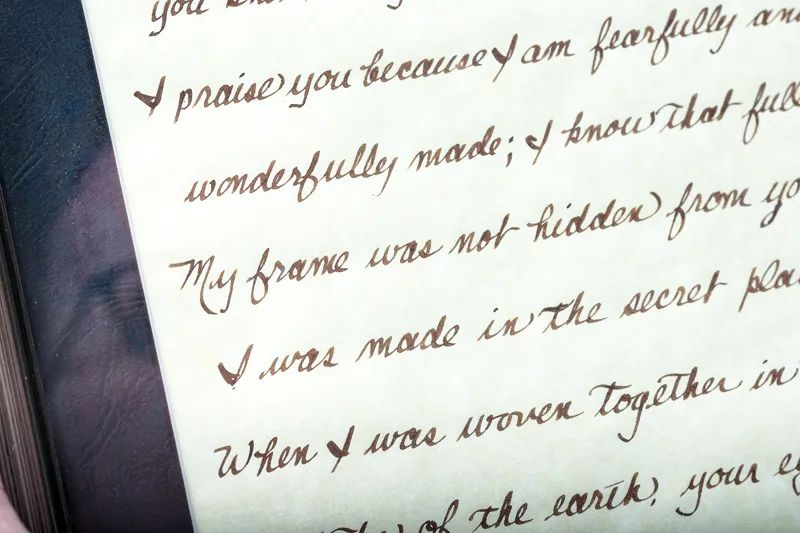 you
I praise you because I am fearfully and
wonderfully made; I know that full
My frame was not hidden from
I was made in the secret
When I was woven together in
of the earth, your